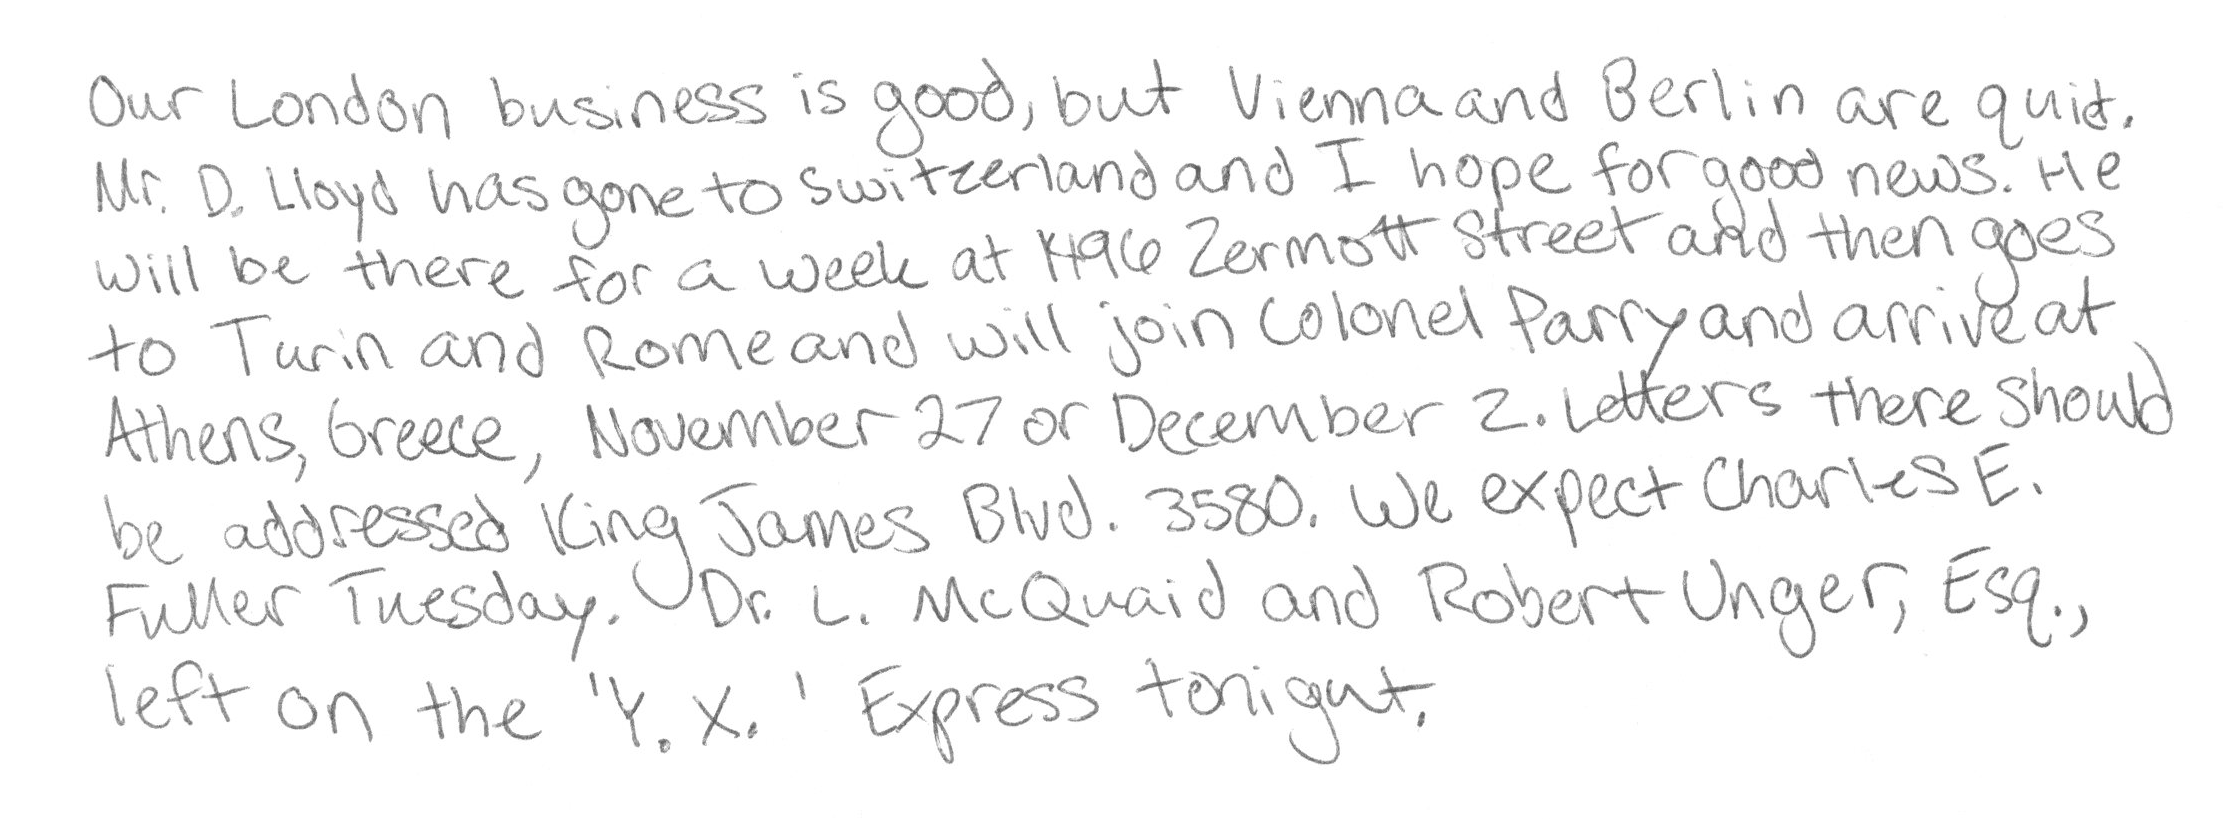 Our London business is good, but Vienna and Berlin are quit.
Mr. D. Lloyd has gone to Switzerland and I hope for good news. He
will be there for a week at 1496 Zermott Street and then goes
to Turin and Rome and will join Colonel Parry and arrive at
Athens, Greece, November 27 or December 2. Letters there should
be addressed King James Blvd. 3580. We expect Charles E.
Fuller Tuesday. Dr. L. McQuaid and Robert Unger, Esq.,
left on the 'Y. X.' Express tonight.